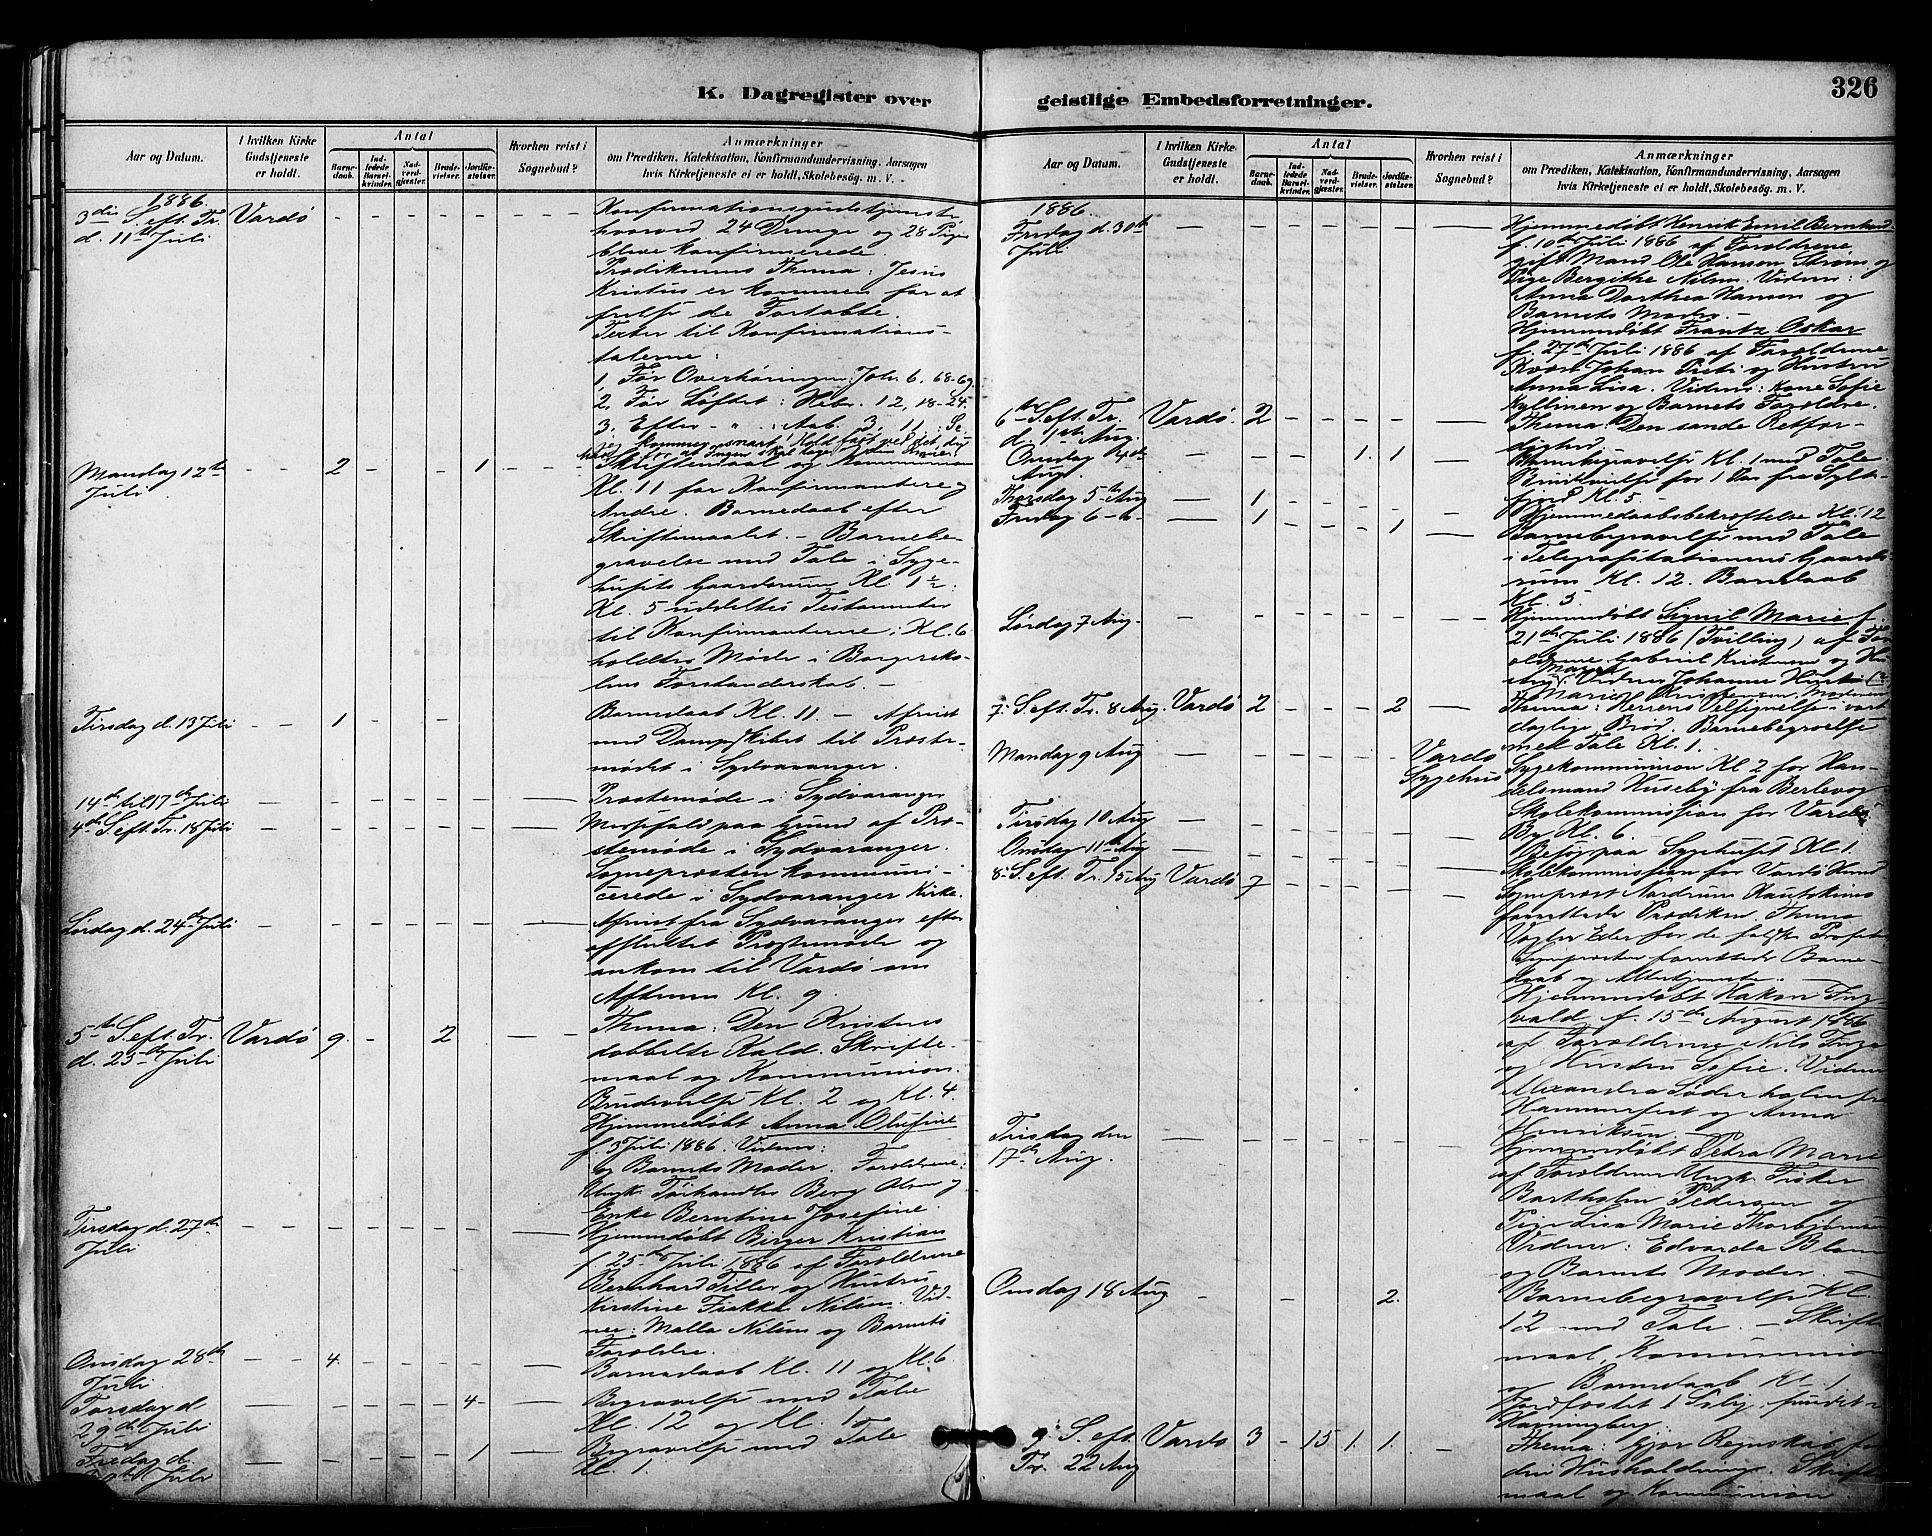 K. Dagregister over
Aar og Datum.
I hvilken Kirke Gudstjeneste er holdt.
Antal
Barnedaab.
Indledede Barselkvinder.
Nadverdgjester.
Brudevielser.
Jordfæstelser.
Hvorhen reist i Sognebud?
Anmærkninger
om Prædiken, Katekisation, Konfirmandundervisning, Aarsagen
hvis Kirketjeneste ei er holdt, Skolebesøg. m. V.
1886.
3die S. eft. Tr. Vardö - - - - - - Konfirmationsgudstjeneste
d. 11te Juli hvorved 24 Drenge og 28 Piger
bleve konfirmerede.
Prædikenens Thema: Jesus
Kristus er kommen for at
frelse de Fortabte.
Texter til Konfirmations-
talerne:
1, Før Overhøringen: Joh. 6, 68-69
2, Før Løftet: Hebr. 12, 18-24.
3, Efter - " - : Aab. 3, 11: Se,
jeg kommer snart! Hold fast ved det, du
har, for at Ingen skal tage
Mandag 12te 2 - - - 1 Skriftemaal og Kommunion
Juli Kl. 11 for Konfirmantere og
Andre. Barnedaab efter
Skriftemaalet. - Barnebe-
gravelse med Tale i Syge-
husets Gaardsrum Kl. 1
Kl. 5 uddeltes Testamenter
til Konfirmanterne; Kl. 6
holdtes Møde i Borgersko-
lens Forstanderskab. -
Tirsdag d. 13 Juli - 1 - - - Barnedaab Kl. 11. - Afreist
med Dampskibet til Prøste-
mødet i Sydvaranger.
14de til 17de Juli - - - - - - Prostemøde i Sydvaranger
4de S. eft. Tr. 18 Juli - - - - - - Messefald paa Grund af Pro-
stemøde i Sydvaranger.
Sognepresten kommuni-
cerede i Sydvaranger Kirke.
Lørdag d. 24de Juli - - - - - - Afreist fra Sydvaranger efter
afsluttet Prostemøde og
ankom til Vardö om
Aftenen Kl. 9.
5te S. eft. Tr. Vardö 9 - - 2 - Thema: Den Kristnes
d. 25de Juli dobbelte Kald. Skrifte-
maal og Kommunion.
Brudevielse Kl. 2 og Kl. 4.
Hjemmedøbt Anna Olufine
f. 3 Juli 1886. Vidner:
og Barnets Moder. Forældrene:
Ungk. Berg Olsen og
Enke Berntine Josefine.
Tirsdag d. 27de - - - - - - Hjemmedøbt Birger Kristian
Juli f. 25de Juli 1886 af Forældrene
Bernhard Tiller og Hustru
Kirstine Nilsen. Vid-
ner: Malla Nilsen og Barnets
Forældre.
Onsdag 28de - 4. - - - - Barnedaab Kl. 11 og Kl. 6.
Juli
Torsdag d. - - - - 4 - Begravelse med Tale
29de Juli Kl. 12 og Kl. 1
Fredag d. - - - - 1 - Begravelse med Tale
Juli Kl. 1.
geistlige Embedsforretninger.
326
Aar og Datum.
I hvilken Kirke Gudstjeneste er holdt.
Antal
Barnedaab.
Indledede Barselkvinder.
Nadverdgjester.
Brudevielser.
Jordfæstelser.
Hvorhen reist i Sognebud?
Anmærkninger
om Prædiken, Katekisation, Konfirmandundervisning, Aarsagen
hvis Kirketjeneste ei er holdt, Skolebesøg, m. V.
1886.
Fredag d. 30te - - - - - - Hjemmedøbt Henrik Emil Bernhard
Juli f. 10de Juli 1886 af Forældrene
gift Mand Ole Hansen Strøm og
Pige Bergithe Nilsen. Vidner:
Anna Dorthea Hansen og
Barnets Moder. -
Hjemmedøbt Frantz Oskar
f. 27de Juli 1886 af Forældrene
Kvæn Johan og Hustru
Anna Lisa. Vidner: Kone Sofie
Kyllinen og Barnets Forældre.
6te S. eft. Tr. Vardö 2 - - - - - Thema: Den sande Retfær-
d. 1ste Aug. dighed.
Onsdag 4de - - - 1. 1 - Barnebegravelse Kl. 1 med Tale
Aug. Brudevielse for 1 Par fra Sylte-
fjord Kl. 5. -
Thorsdag 5te Aug - 1 - - - - - Hjemmedaabsbekræftelse Kl. 12
Fredag 6te - 1 - - - 1 - Barnebegravelse med Tale
i Telegrafstationens Gaards-
rum Kl. 12. Barnedaab
Kl. 5.
Lørdag 7 Aug. - - - - - - Hjemmedøbt Signil Marie f.
21de Juli 1886 (Tvilling) af For-
ældrene Gabriel Kristensen og
Vidner Johanne
7. S. eft. Tr. 8 Aug. Vardö 2 - - - 2 - Thema: Herrens Velsignelse i vort
daglige Brød. Barnebegravelse
med Tale Kl. 1.
Mandag 9 Aug - - - - - - Vardö Sygehus Sygekommunion Kl 2 for Han-
delsmand Huseby fra Berlevog
Tirsdag 10 Aug - - - - - - Skolekommission for Vardö
By Kl. 6.
Onsdag 11te Aug Besøg paa Sygehuset Kl. 1.
Skolekommission for Vardö
8. S. eft. Tr. 15 Aug Vardö 7 - - - - - Sognepræst Nordrum Kautokeino
forrettede Prædiken. Thema
Vogter Eder for de falske Profeter
Sognepresten forrettede Barne-
daab og Altertjeneste.
Hjemmedøbt Hakon Ing-
vald f. 15de August 1886
af Forældrene Nils
og Hustru Sofie. Vidner
Alexandra Søderholm fra
Hammerfest og Anna
Henriksen -
Tirsdag den - - - - - - Hjemmedøbt Petra Marie
17de Aug. af Forældrene Ungk. Fisker
Bartholm Pedersen og
Pige Lisa Marie Thorbjørnsen
Vidner: Edvarda Blom
og Barnets Moder. -
Onsdag 18 Aug - - - - 2. - Barnebegravelse Kl.
12 med Tale. - Skrifte-
maal, Kommunion
og Barnedaab Kl. 1.
Jordfæstet 1 Lig, fundet i
Havningberg.
9. S. eft. Vardö 3 - 15 1. 1. - Thema: Gjør Regnskab for
Tr. 22 Aug din Husholdning. Skrifte-
maal og Kommunion.